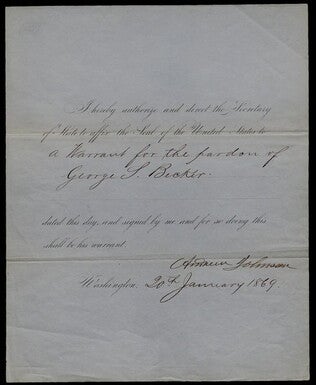 I hereby authorize and direct the Secretary
of State to affix the Seal of the United States to
a Warrant for the pardon of
George S. Becker.
dated this day, and signed by me and for so doing this
shall be his warrant.
Andrew Johnson
Washington, 20th January 1869.